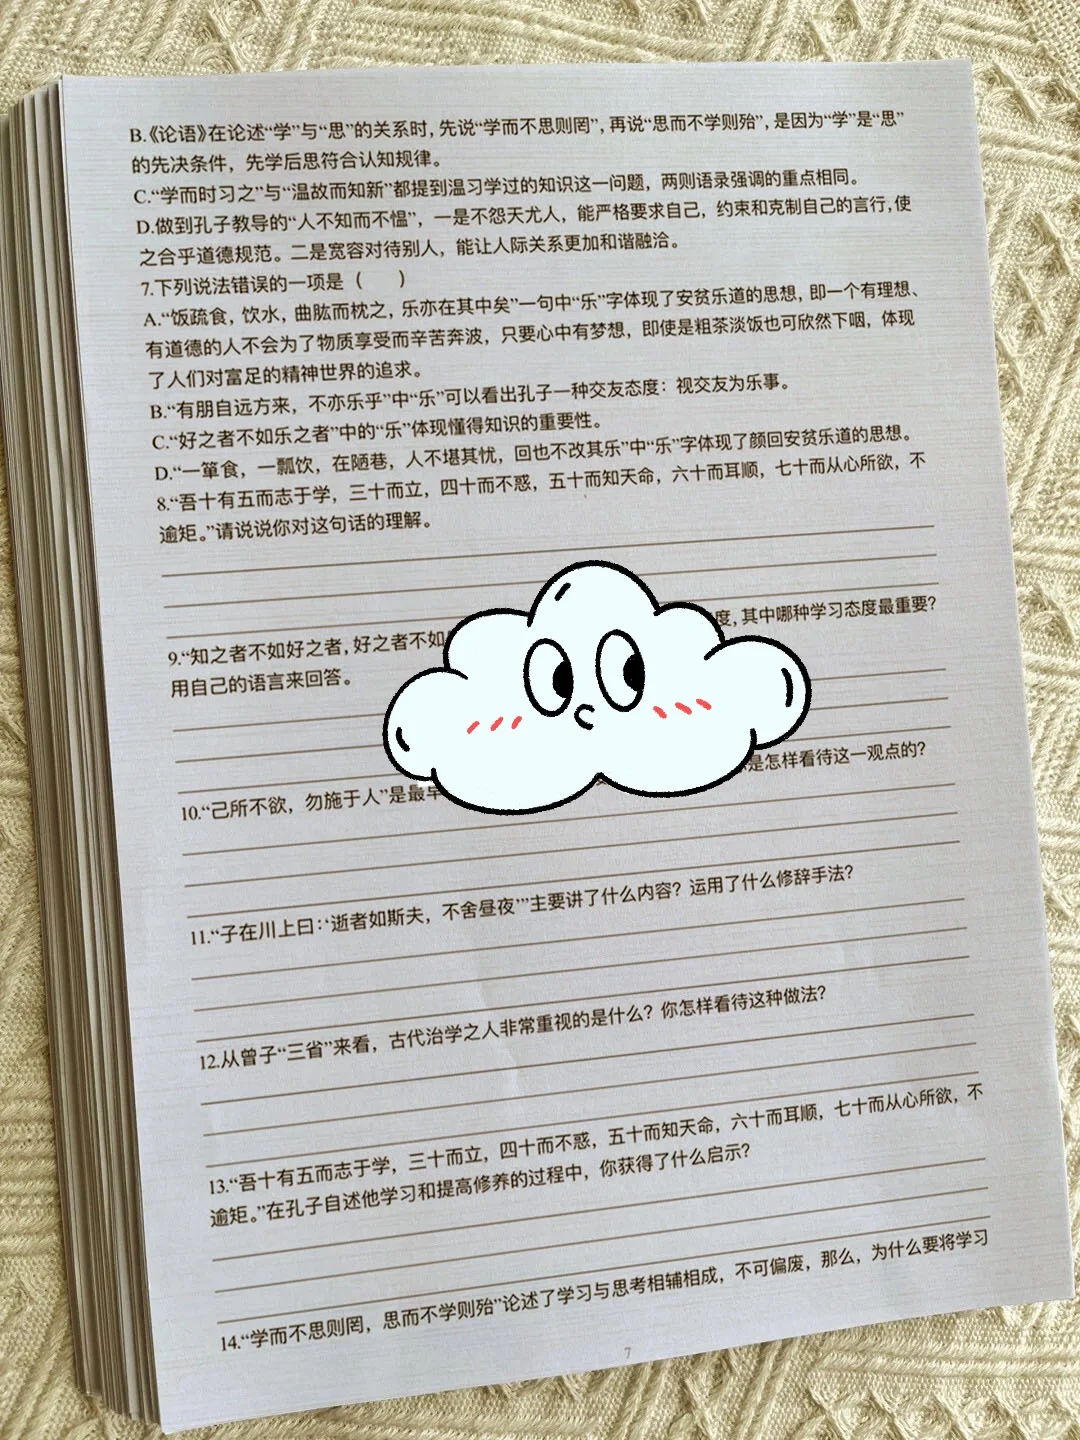 B.《论语》在论述“学”与“思”的关系时，先说“学而不思则罔”，再说“思而不学则殆”，是因为“学”是“思”
的先决条件，先学后思符合认知规律。
C.“学而时习之”与“温故而知新”都提到温习学过的知识这一问题，两则语录强调的重点相同。
D.做到孔子教导的“人不知而不愠”，一是不怨天尤人，能严格要求自己，约束和克制自己的言行，使
之合乎道德规范。二是宽容对待别人，能让人际关系更加和谐融洽。
7.下列说法错误的一项是（　　）
A.“饭疏食，饮水，曲肱而枕之，乐亦在其中矣”一句中“乐”字体现了安贫乐道的思想，即一个有理想、
有道德的人不会为了物质享受而辛苦奔波，只要心中有梦想，即使是粗茶淡饭也可欣然下咽，体现
了人们对富足的精神世界的追求。
B.“有朋自远方来，不亦乐乎”中“乐”可以看出孔子一种交友态度：视交友为乐事。
C.“好之者不如乐之者”中的“乐”体现懂得知识的重要性。
D.“一箪食，一瓢饮，在陋巷，人不堪其忧，回也不改其乐”中“乐”字体现了颜回安贫乐道的思想。
8.“吾十有五而志于学，三十而立，四十而不惑，五十而知天命，六十而耳顺，七十而从心所欲，不
逾矩。”请说说你对这句话的理解。
9.“知之者不如好之者，好之者不如 度，其中哪种学习态度最重要？
用自己的语言来回答。
10.“己所不欲，勿施于人”是最早 是怎样看待这一观点的？
11.“子在川上曰：‘逝者如斯夫，不舍昼夜’”主要讲了什么内容？运用了什么修辞手法？
12.从曾子“三省”来看，古代治学之人非常重视的是什么？你怎样看待这种做法？
13.“吾十有五而志于学，三十而立，四十而不惑，五十而知天命，六十而耳顺，七十而从心所欲，不
逾矩。”在孔子自述他学习和提高修养的过程中，你获得了什么启示？
14.“学而不思则罔，思而不学则殆”论述了学习与思考相辅相成，不可偏废，那么，为什么要将学习
7